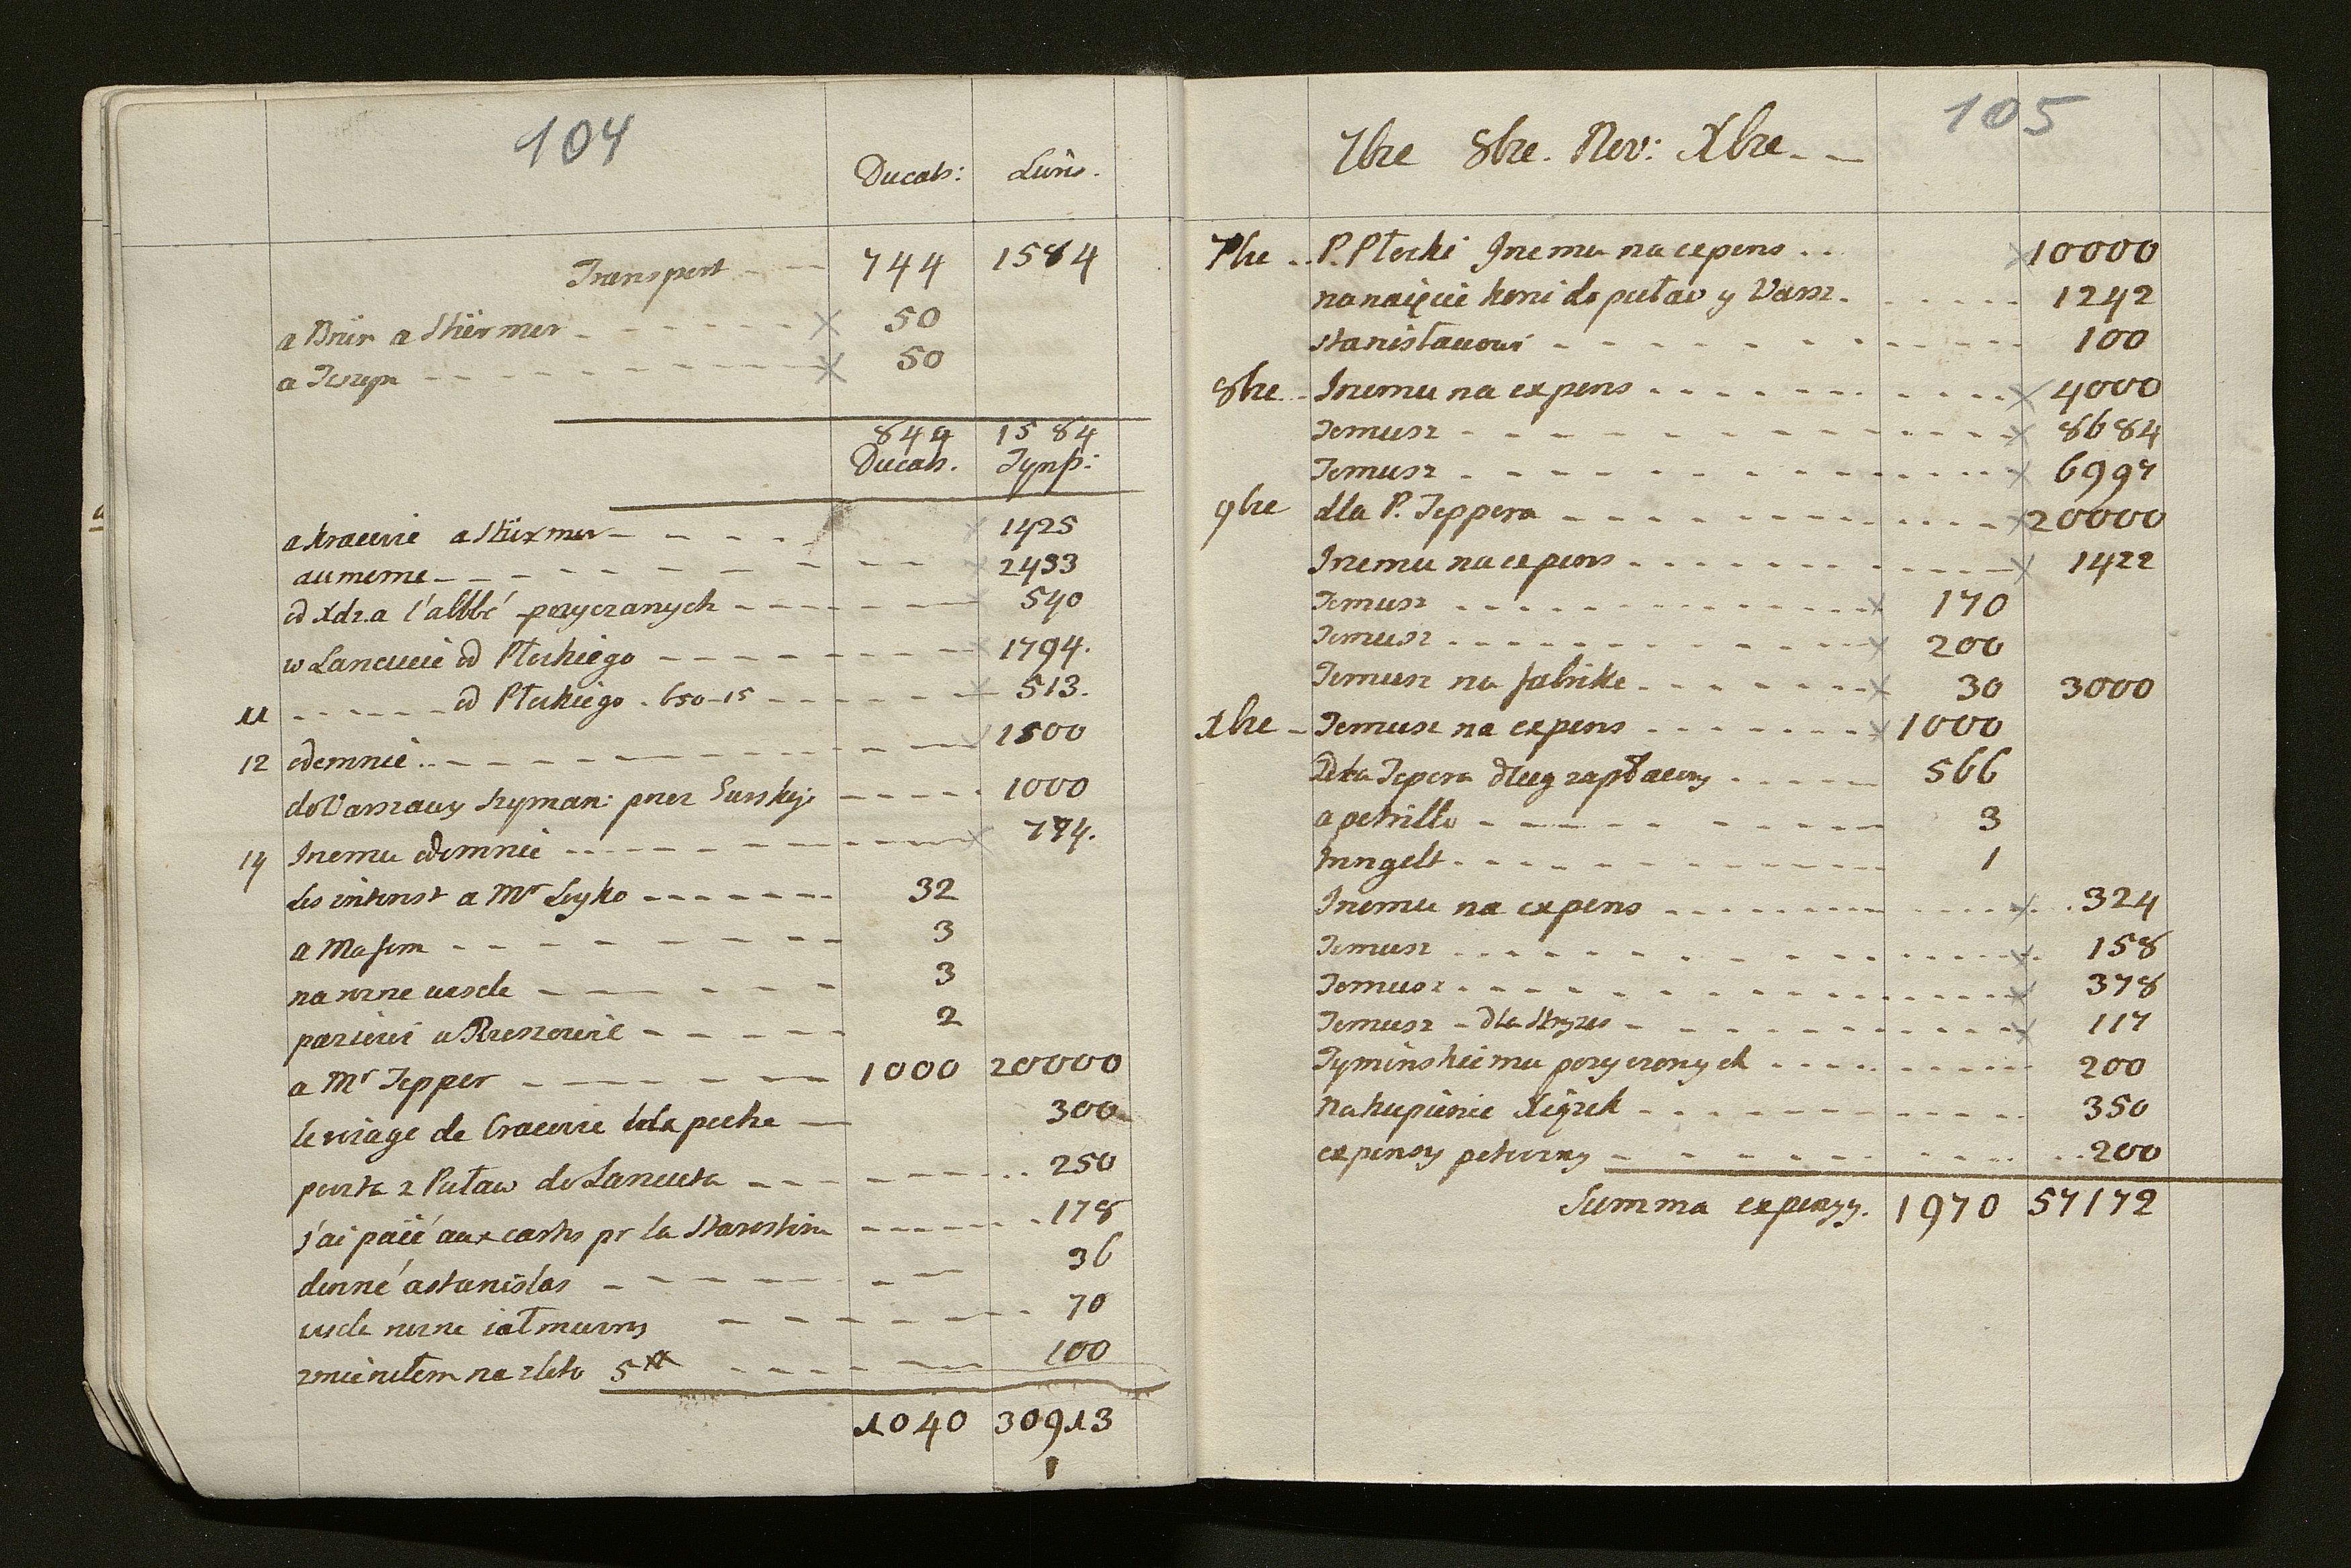 104
Ducats: Luris.
Transport 744 1584
a Brür a Stürmer x 50
a Joseph x 50
844 1584
Ducats. Tynp:
a kracovie a Stürmer 1425
au meme 2433
od Xdz. a l'abbé pozyczanych 540
w Lancucie od Płockiego 1794.
11 od Płockiego . 650-15 513.
12 odemnie 1500
do Varszavy Szyman: przez Gurskiż 1000
14 Inemu odemnie 774.
les interest a Mr Leyko 32
a Masson 3
na rozne 3
w Rzeszowie 2
a Mr Tepper 1000 20000
le voiage de Cracovie 300
poczta z Puław do Lancuta 250
j'ai païé aux cartes pr la Starostina 178
donné a stanislas 36
rozne iałmuzny 70
zmieniłem na zloto 5 xx 100
1040 30913
105
7bre 8bre. Nov: Xbre
7bre P. Płocki Inemu na expens x 10000
na naięcie koni do puław y Varsz. 1242
stanisławowi 100
8bre Inemu na expens x 4000
Temusz x 8684
Temusz x 6997
9bre dla P. Teppera x 20000
Inemu na expens x 1422
Temusz x 170
Temusz x 200
Temusz na fabrike x 30 3000
Xbre Temusz na expens x 1000
Tepera dług zapłacony 566
a petrillo 3
1
Inemu na expens x 324
Temusz x 158
Temusz x 378
Temusz - dla x 117
Tyminskiemu pozyczonych 200
na kupienie Xiązek 350
expensy 200
Summa expensy. 1970 57172